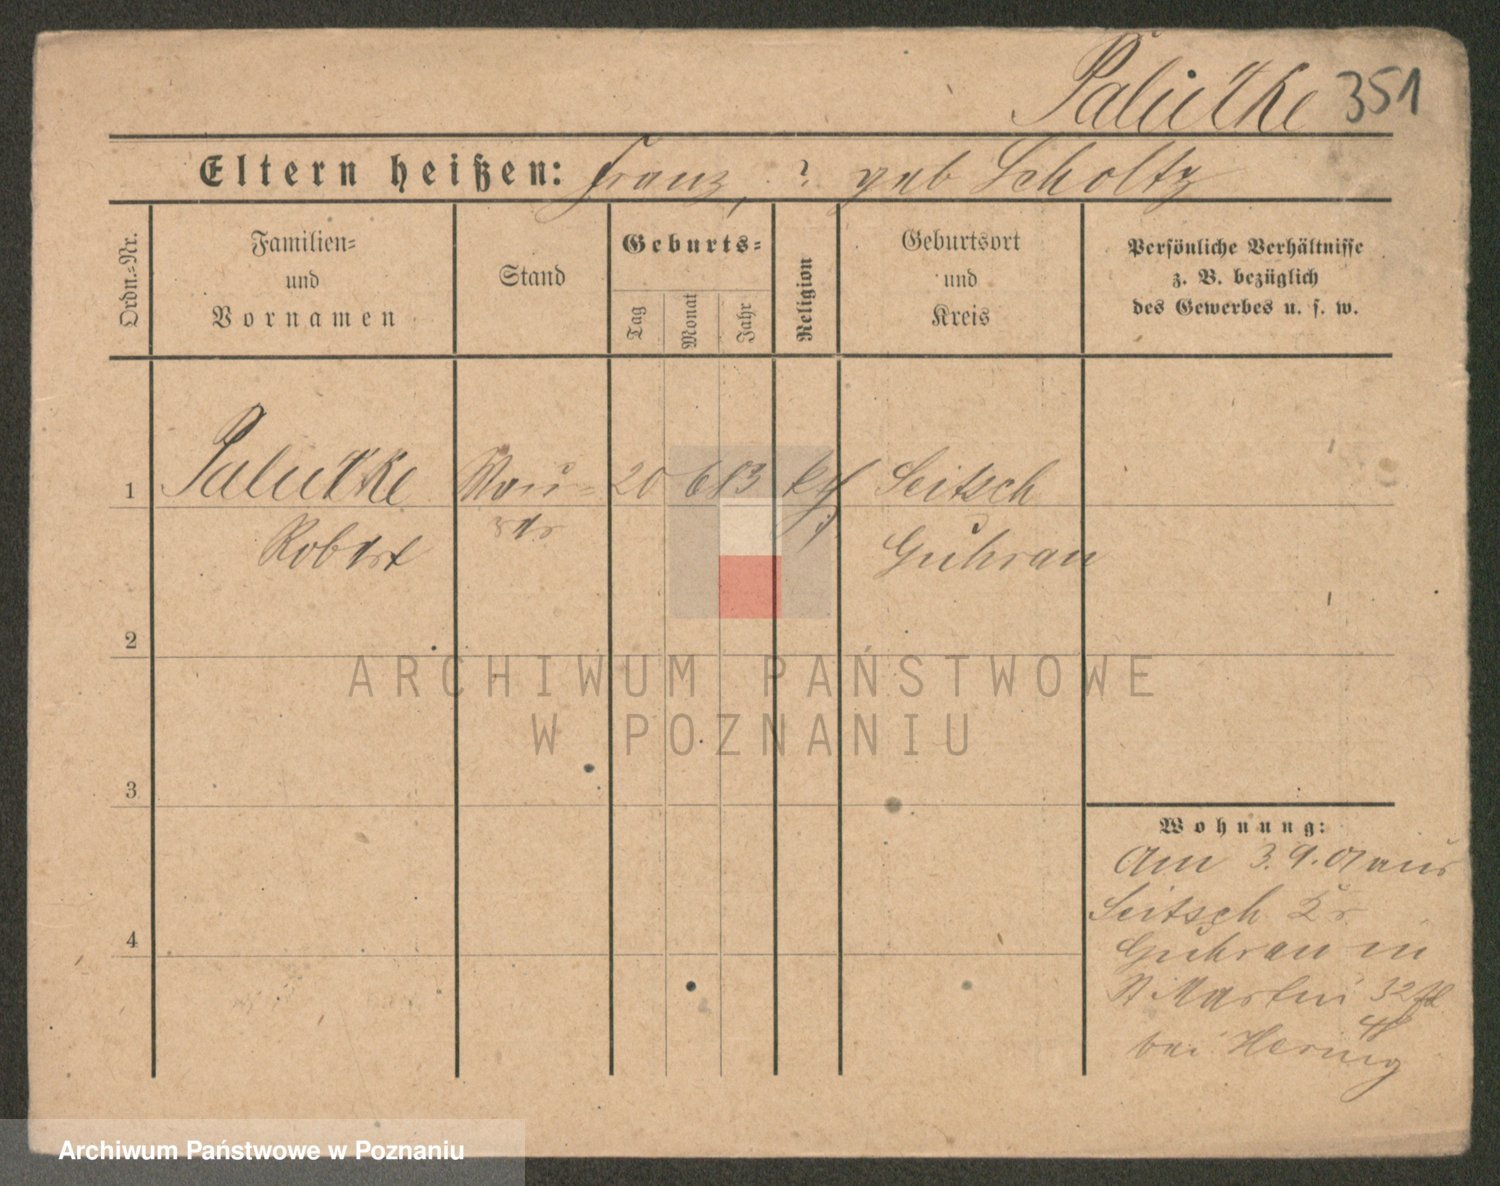 Paluttke 351
Eltern heißen: Franz, ? geb Scholtz
Ordn.-Nr.
Familien-
und
Vornamen
Stand
Geburts-
Tag
Monat
Jahr
Religion
Geburtsort
und
Kreis
Persönliche Verhältnisse
z. B. bezüglich
des Gewerbes u. s. w.
1 Paluttke Mau- 20 6 83 Seitsch
Robert rer Guhrau
2
3
4
Wohnung:
Am 3.9.01 aus
Seitsch Kr
Guhrau in
St Martin 32
bei Hernig
ARCHIWUM PAŃSTWOWE
W POZNANIU
Archiwum Państwowe w Poznaniu